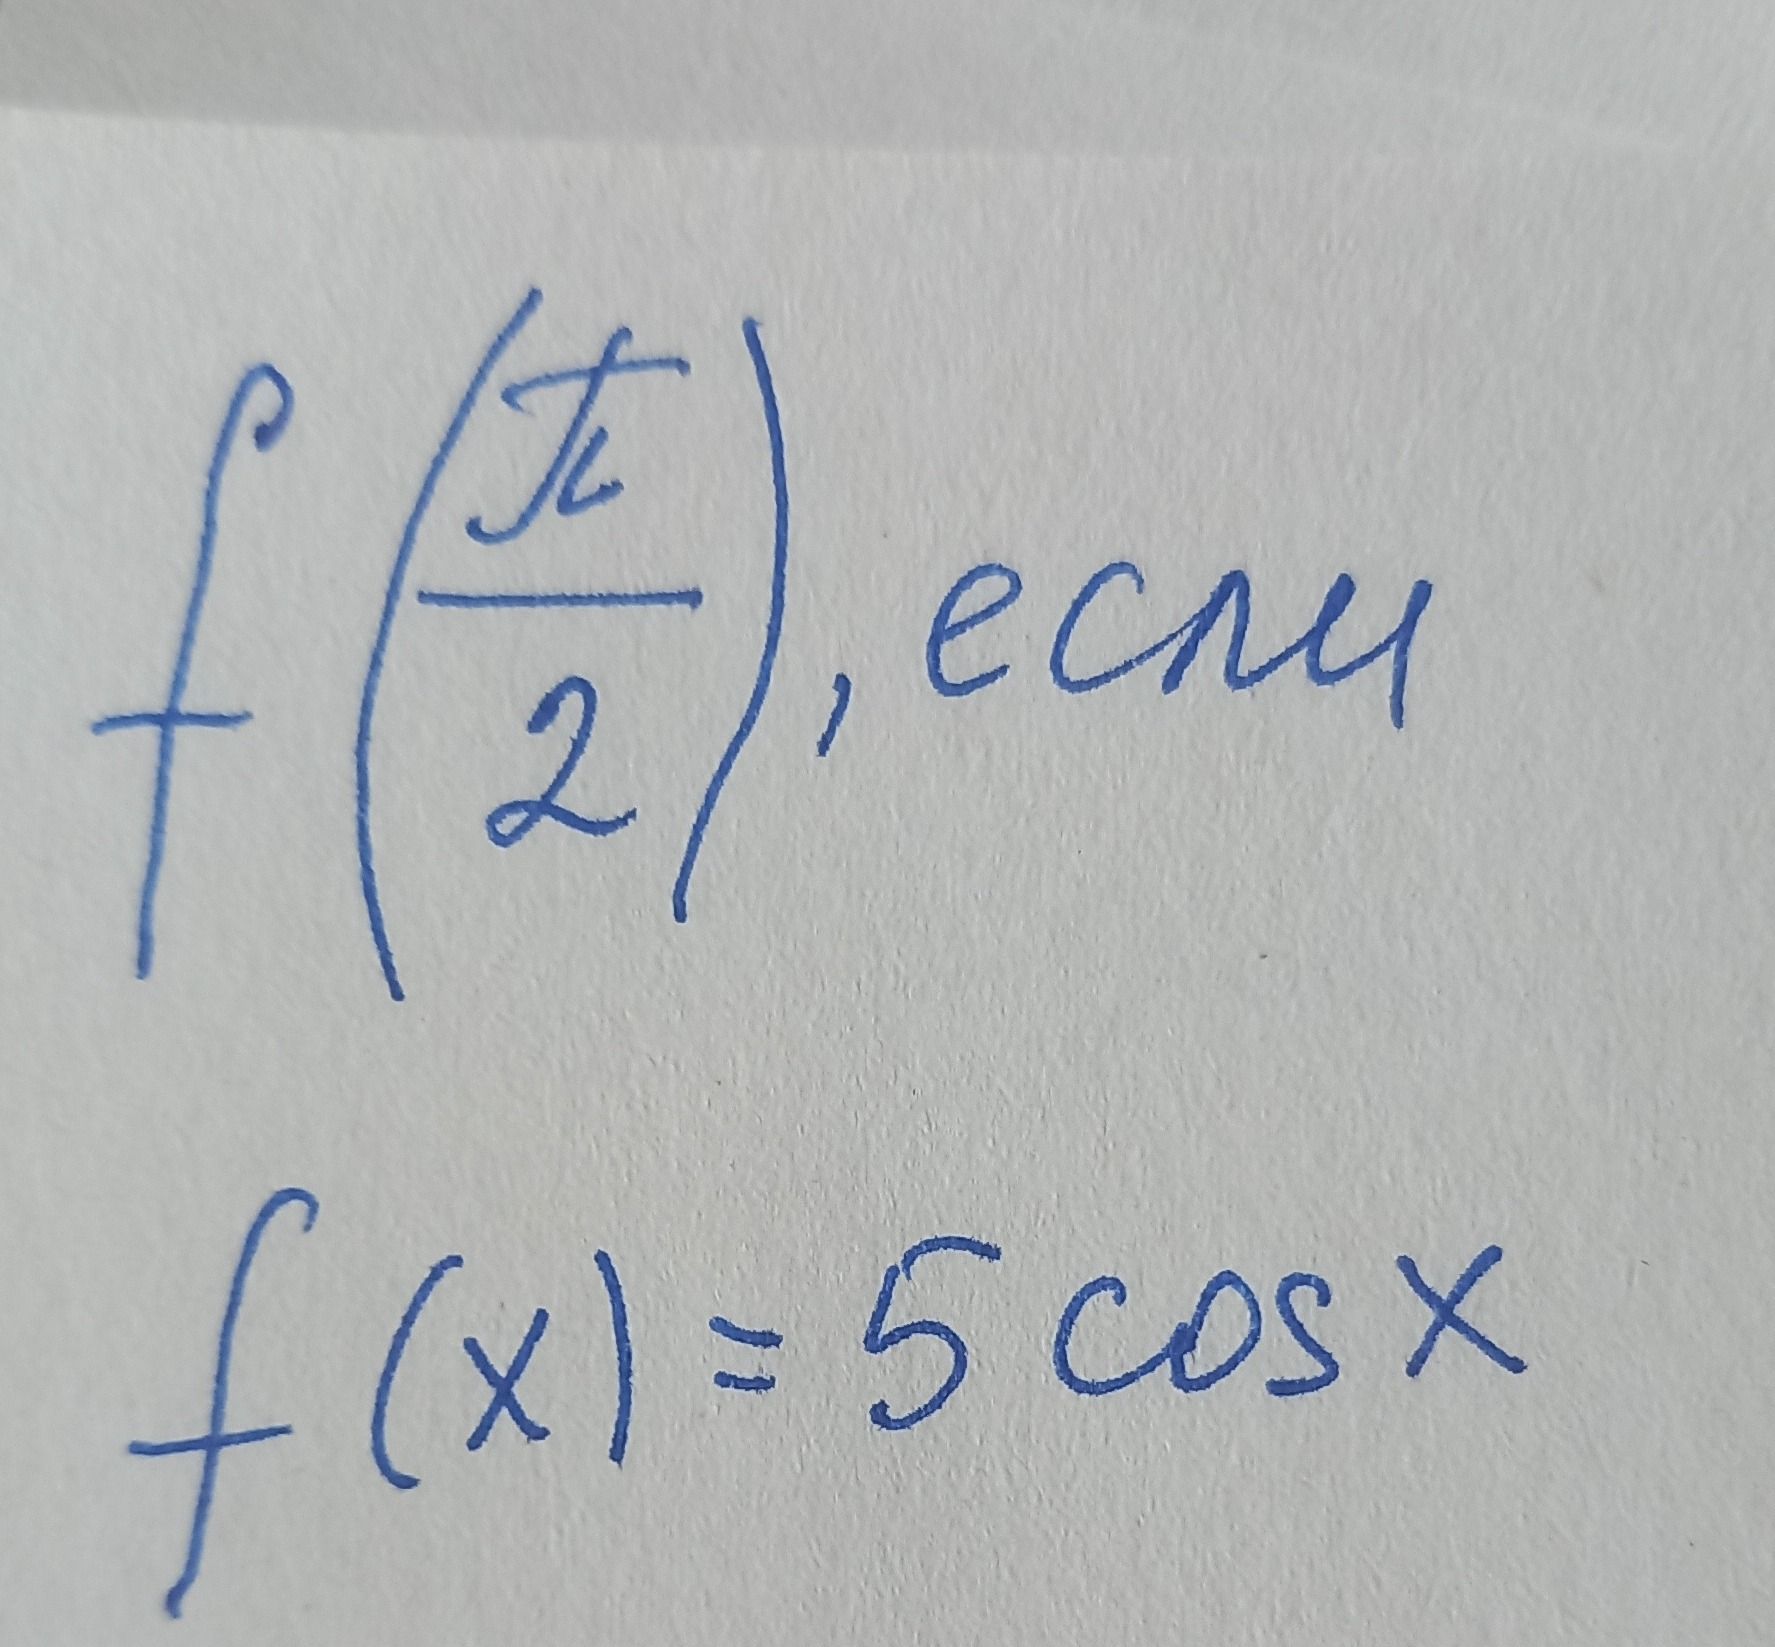 f(π/2), если
f(x) = 5 cos x